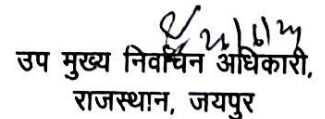 21/6/24
उप मुख्य निर्वाचन अधिकारी,
राजस्थान, जयपुर